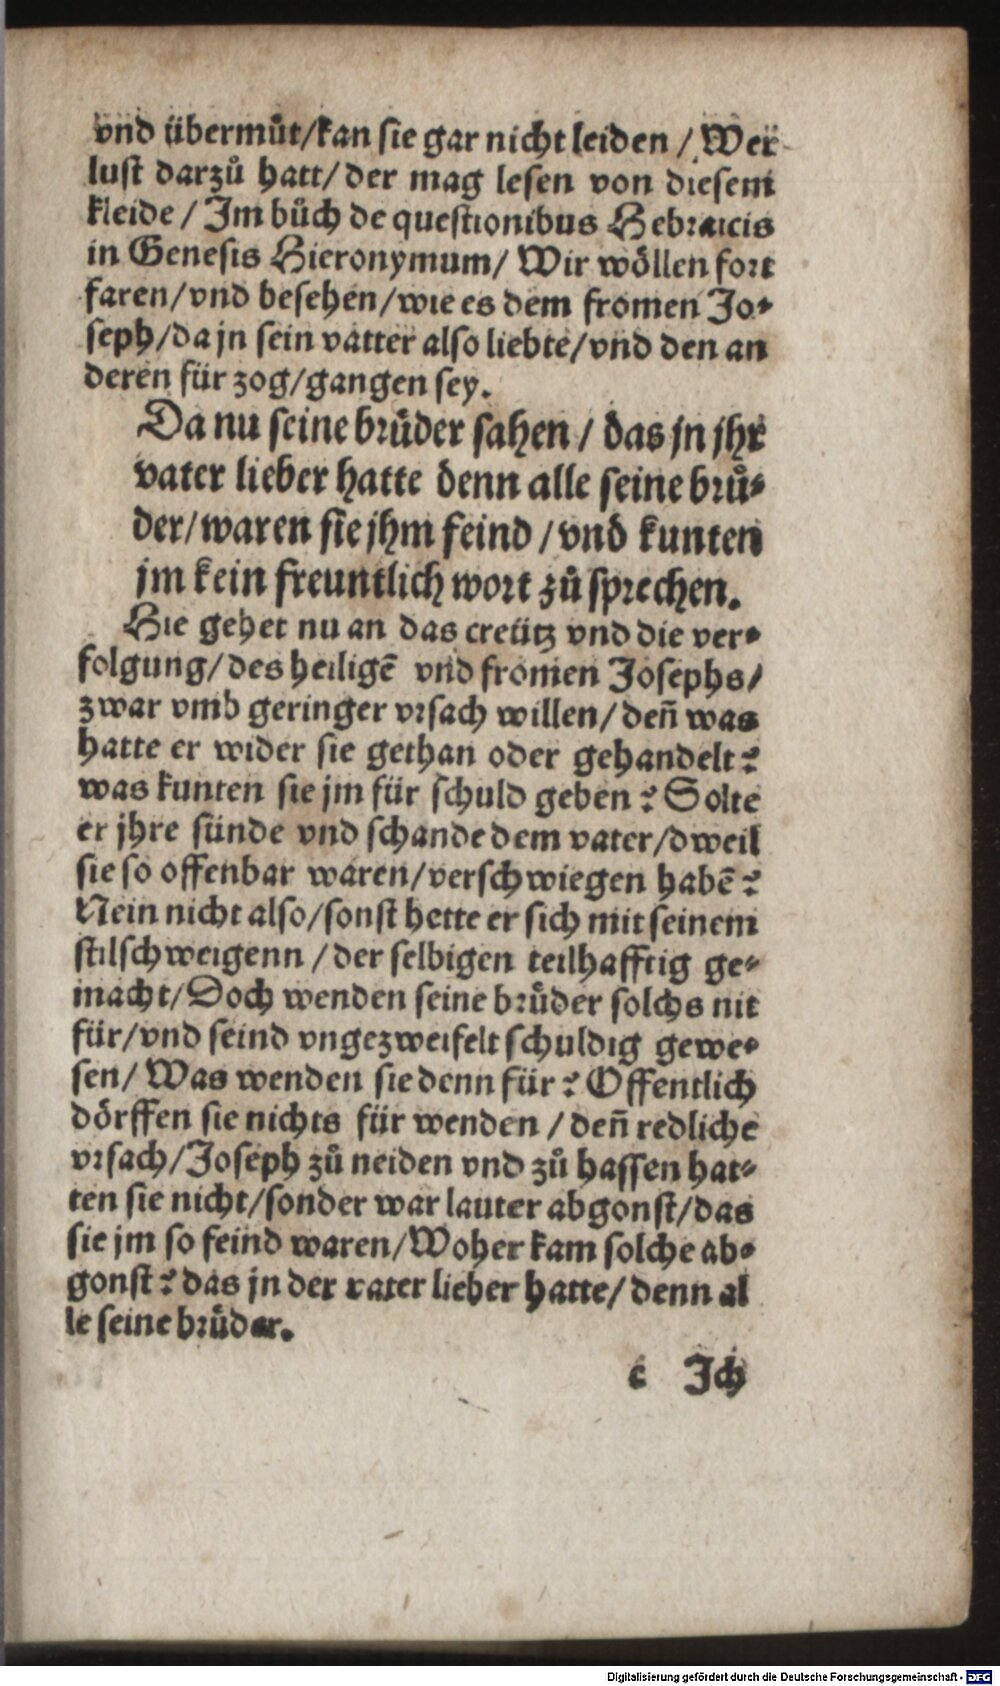 vnd übermůt/kan sie gar nicht leiden / Wer
lust darzů hatt/ der mag lesen von diesem
kleide / Im bůch de questionibus Hebraicis
in Genesis Hieronymum/ Wir wöllen fort
faren/vnd besehen/wie es dem fromen Jo-
seph/da jn sein vatter also liebte/vnd den an
deren für zog/gangen sey.
Da nu seine brůder sahen / das jn jhr
vater lieber hatte denn alle seine brů-
der/waren sie jhm feind / vnd kunten
jm kein freuntlich wort zů sprechen.
Hie gehet nu an das creütz vnd die ver-
folgung/des heiligē vnd fromen Josephs/
zwar vmb geringer vrsach willen/ deñ was
hatte er wider sie gethan oder gehandelt?
was kunten sie jm für schuld geben? Solte
er jhre sünde vnd schande dem vater/dweil
sie so offenbar waren/verschwiegen habē?
Nein nicht also/sonst hette er sich mit seinem
stilschweigenn / der selbigen teilhafftig ge-
macht/Doch wenden seine brůder solchs nit
für/vnd seind vngezweifelt schuldig gewe-
sen/ Was wenden sie denn für? Offentlich
dörffen sie nichts für wenden / deñ redliche
vrsach/Joseph zů neiden vnd zů hassen hat-
ten sie nicht/sonder war lauter abgonst/das
sie jm so feind waren/Woher kam solche ab-
gonst? das jn der vater lieber hatte/ denn al
le seine brůder.
c Ich
Digitalisierung gefördert durch die Deutsche Forschungsgemeinschaft - DFG